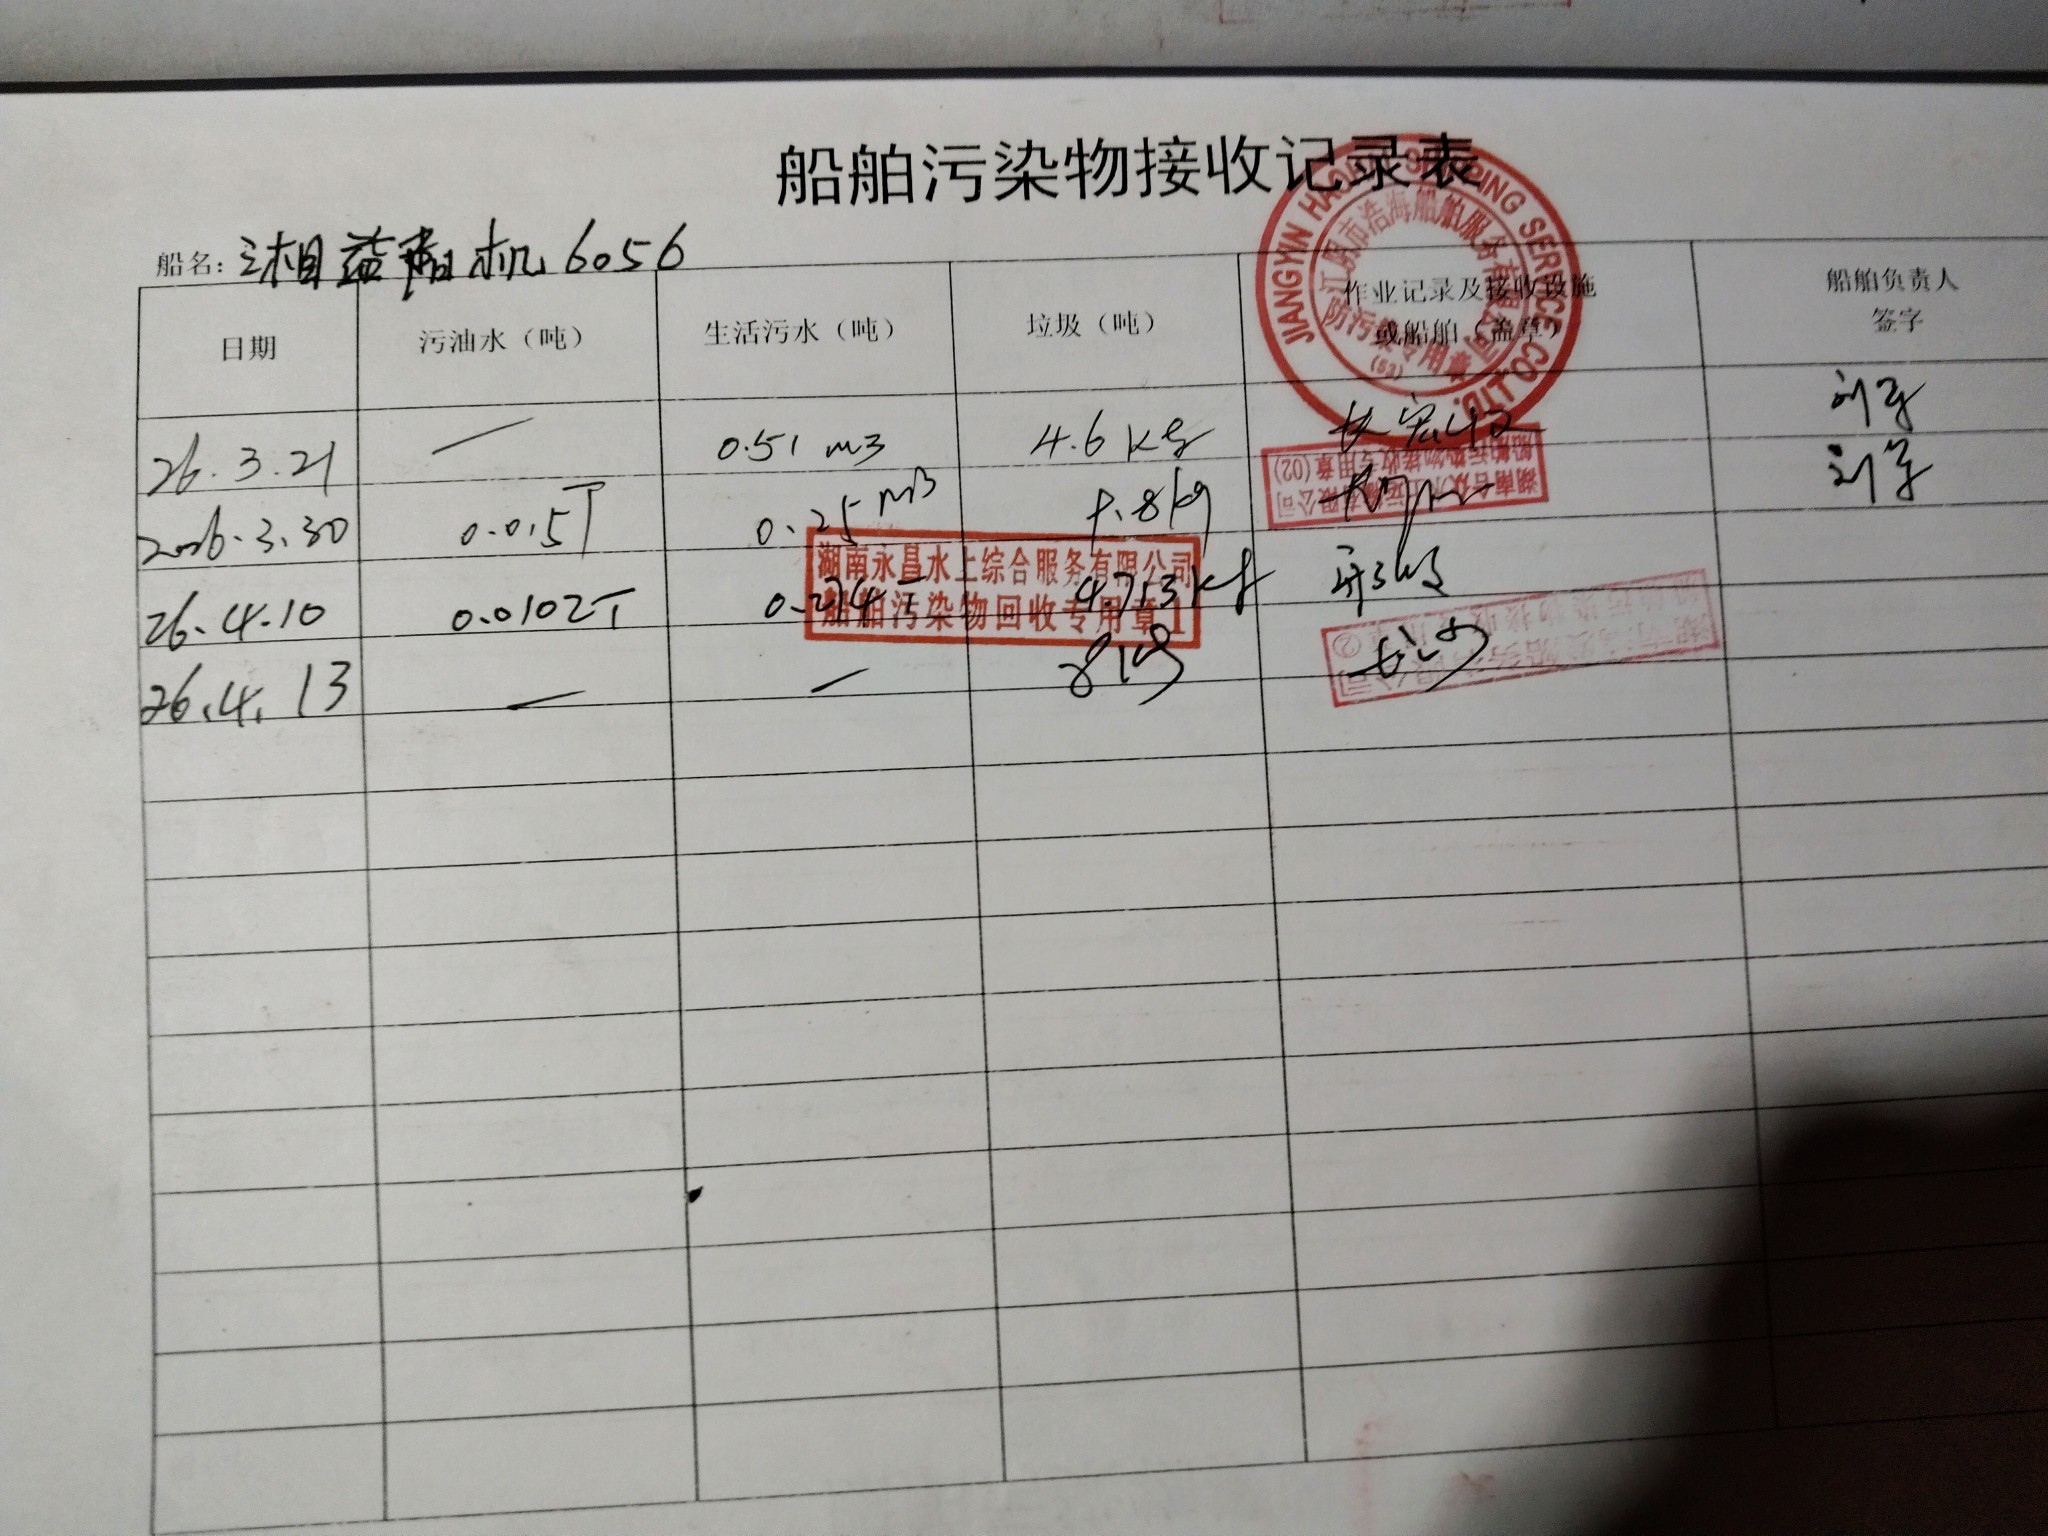 船舶污染物接收记录表
船名: 湘益阳机6056
日期 污油水（吨） 生活污水（吨） 垃圾（吨） 作业记录及接收设施或船舶（盖章） 船舶负责人签字
26.3.21 — 0.51 m3 4.6 kg
2026.3.30 0.015T 0.25 m3 1.8kg
26.4.10 0.0102T 0.214T 4.713kg
26.4.13 — — 8kg 长沙
JIANGYIN HAOHAI SHIPPING SERVICE CO.,LTD.
江阴市浩海船舶服务有限公司
防污染专用章
(53)
船舶污染物接收专用章(02)
湖南永昌水上综合服务有限公司
船舶污染物回收专用章 1